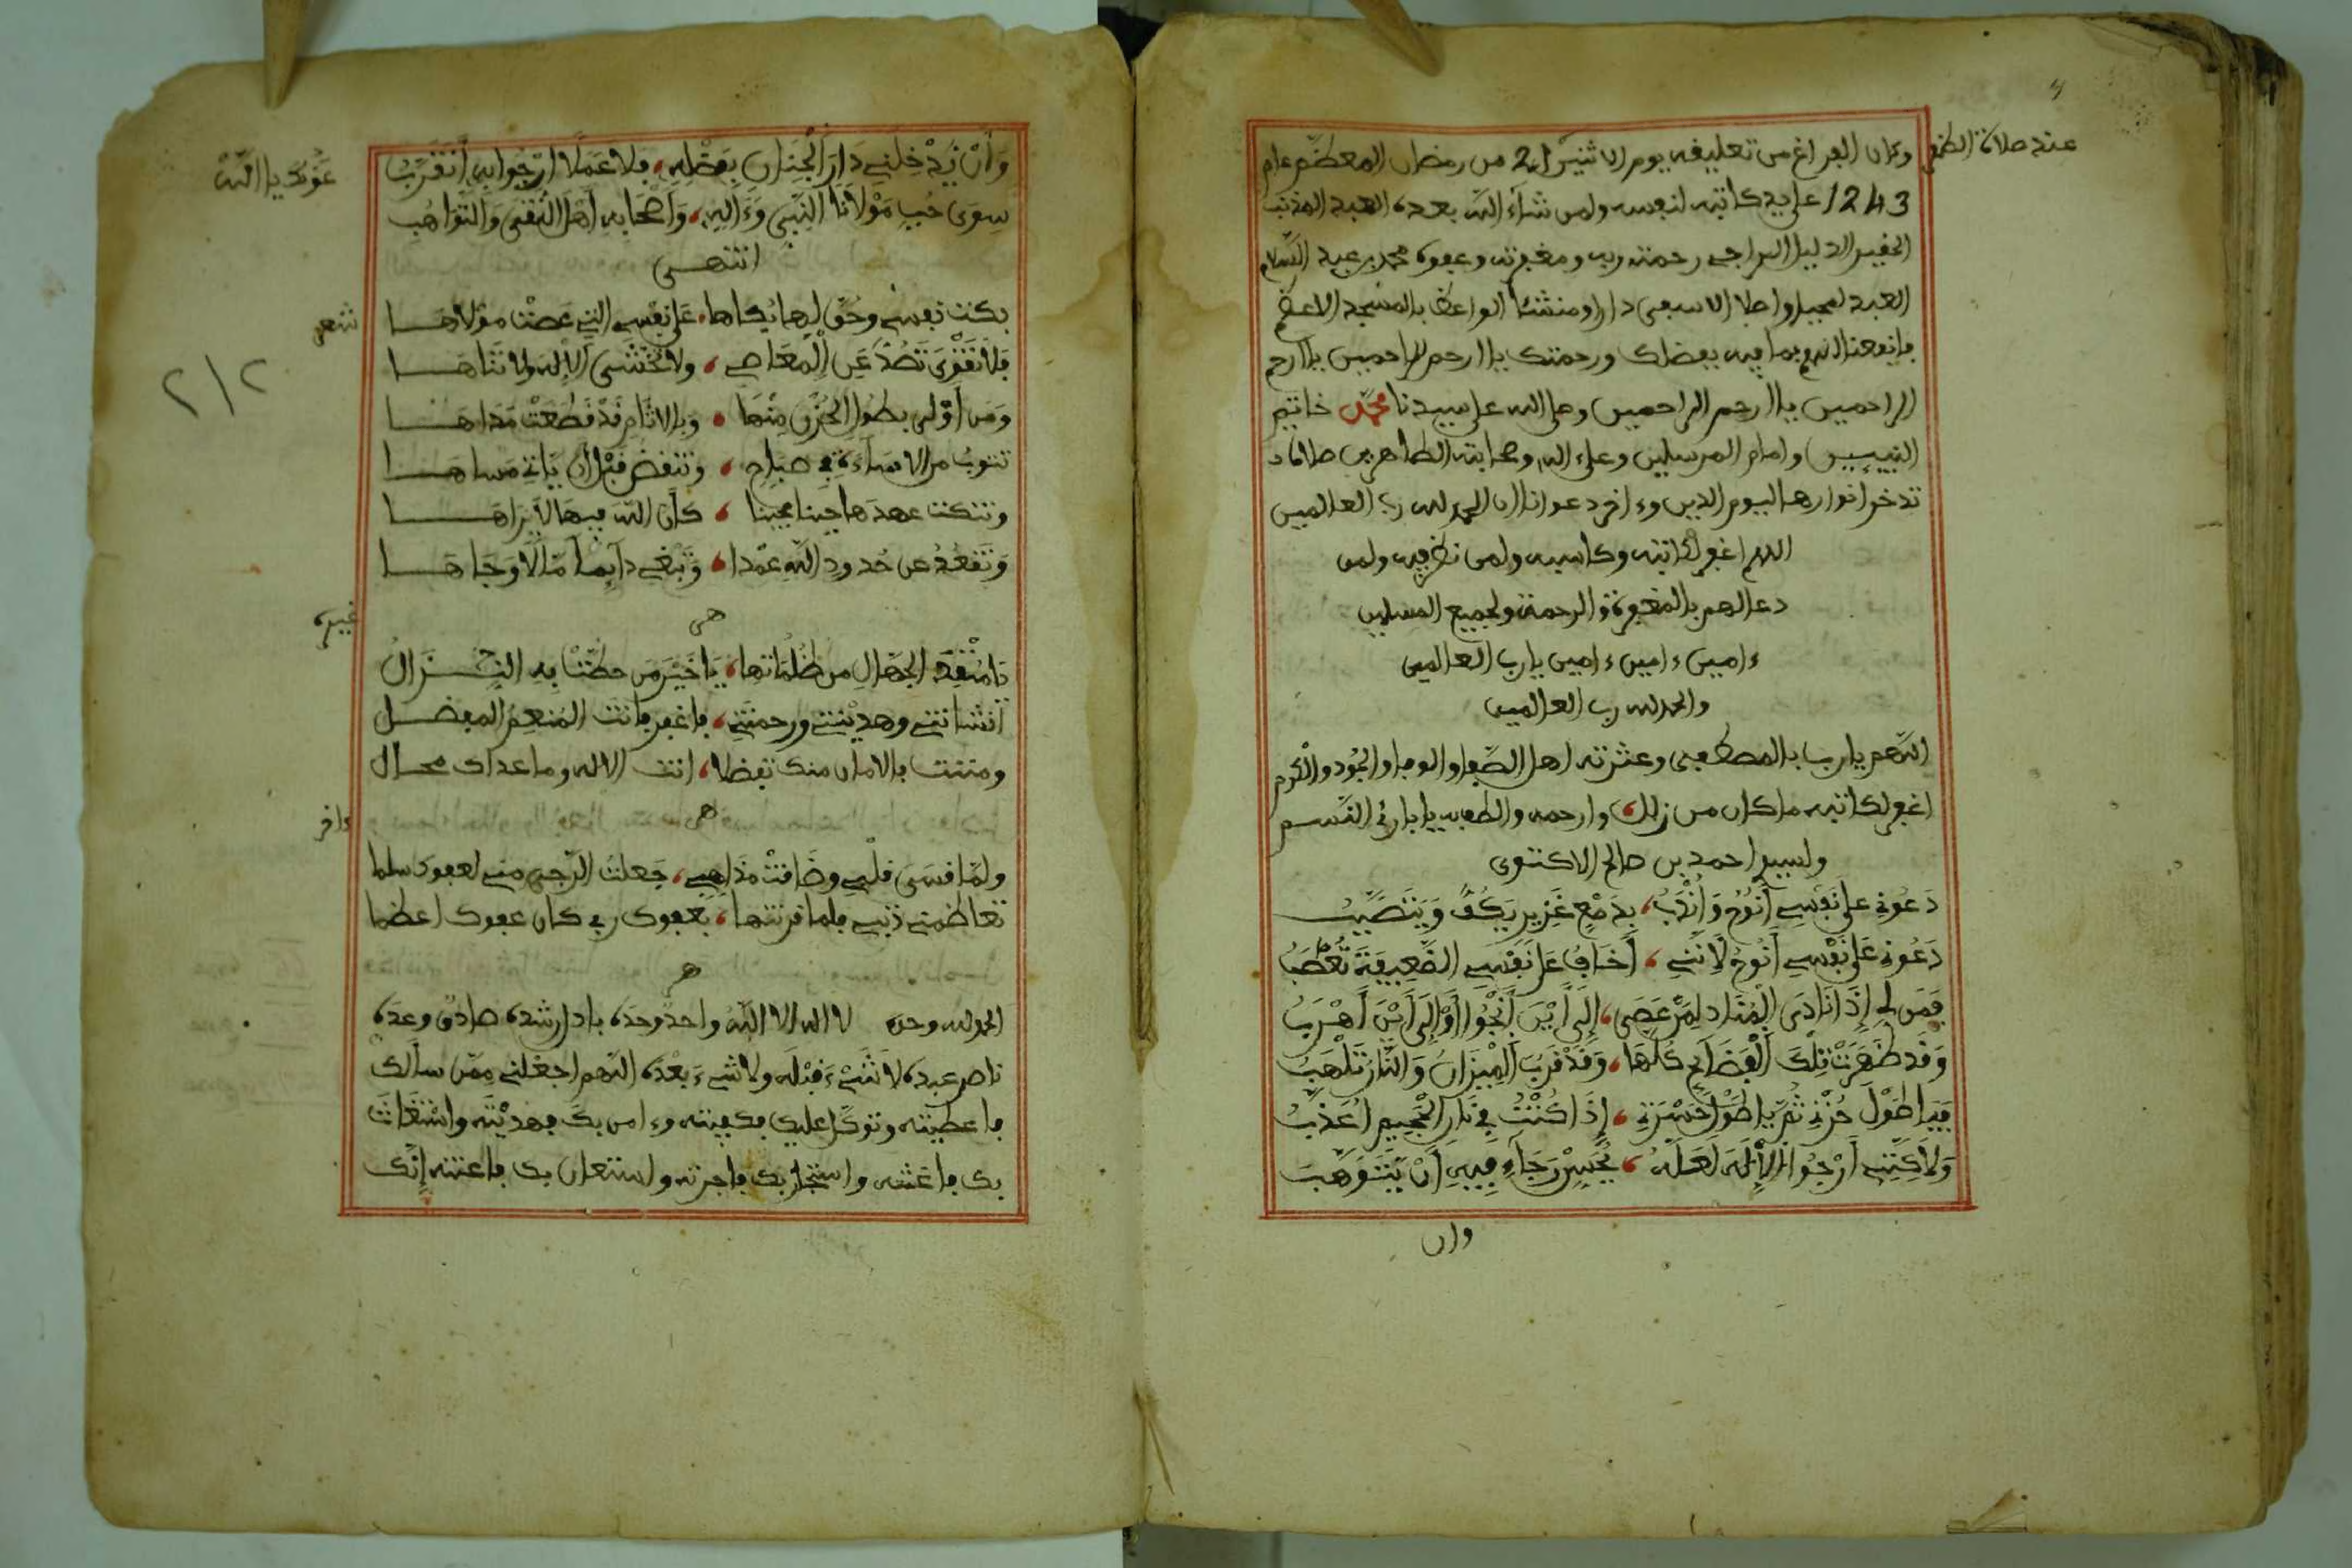 عند صلاة الظهر
وكان الفراغ من تعليقه يوم الاثنين 21 من رمضان المعظم عام
1243 على يد كاتبه لنفسه ولمن شاء الله بعده العبد المذنب
الحقير الذليل الراجي رحمة ربه ومغفرته وعفوه محمد بن عبد السلام
العبد لمجيد اصلا الاسفى دارا ومنشئا الواعظ بالمسجد الاعظم
فانفعنا اللهم بما فيه بفضلك ورحمتك يا ارحم الراحمين يا ارحم
الراحمين يا ارحم الراحمين وصلى الله على سيدنا محمد خاتم
النبيين وامام المرسلين وعلى ءاله وصحابته الطاهرين صلاة
ندخر انوارها اليوم الدين وءاخر دعوانا ان الحمد لله رب العالمين
اللهم اغفر لكاتبه وكاسبه ولمن نظر فيه ولمن
دعا لهم بالمغفرة والرحمة ولجميع المسلمين
ءامين ءامين ءامين يا رب العالمين
والحمد لله رب العالمين
اللهم يا رب بالمصطفى وعثرته اهل الصفا والوفا والجود والكرم
اغفر لكاتبه ما كان من زلل وارحمه والطف به يا بارئ النسم
ولسيد احمد بن صالح الاكتوى
دَعُونِي على نَفْسِي أَنُوحُ وَأَنْدُبُ، بِدَمْعٍ غَزِيرٍ يَكُفُّ وَيَتَصَبَّبُ
دَعُونِي عَلَى نَفْسِي أَنُوحُ لِأَنَّنِي، أَخَافُ عَلَى نَفْسِي الضَّعِيفَةَ تَعْطَبُ
فَمَن لِي إِذَا نَادَى الْمُنَادِ لِمَنْ عَصَى، إِلَى أَيْنَ أَنْجُوا أَوْ إِلَى أَيْنَ أَهْرَبُ
وَقَد ظَهَرَتْ تِلْكَ الْفَضَائِحُ كُلُّهَا، وَقَدْ قَرُبَ الْمِيزَانُ وَالنَّارُ تَلْهَبُ
فَيَا طُولَ حُزْنِي ثُمَّ يَا طُولَ حَسْرَتِي، إِذَا كُنْتُ فِي نَارِ الْجَحِيمِ أُعَذَّبُ
وَلَاكِنَّنِي أَرْجُوا الْإِلَهَ لَعَلَّهُ، بِحُسْنِ رَجَاءِي فِيهِ أَنْ يَتَوَهَّبَ
وان
وَأَنْ يُدْخِلَنِي دَارَ الْجِنَانِ بِفَضْلِهِ، فَلَا عَمَلًا أَرْجُوا بِهِ أَتَقَرَّبُ
سِوَى حُبِّ مَوْلَانَا النَّبِي وَءَالِهِ، وَأَصْحَابِهِ أَهْلِ التُّقَى وَالتَّوَاهُبِ
عَوْنَكَ يا الله
انتهى
شعر
بكت نفسي وحُقَّ لها بُكاها، على نفسي التي عصت مولاها
فلا تقوى تَصُدُّ عَنِ الْمَعَاصِي، ولا تخشى الإله ولا تناها
وَمَن أولى بطول الحُزْنِ مِنْهَا، وبالاثام قد قطعت مداها
تتوب من الاساءة في صباح، وتنقض قبل ان ياتي مساها
وتنكث عهدها حينا فحينا، كأن الله فيها لا يراها
وتقعد عن حدود الله عمدا، وتبغي دايما مالا وجاها
هى
غيره
يا مُنْقِذَ الجهال من ظلماتها، يا خير من حطت به النزال
انشاتني وهديتني ورحمتني، فاغفر فانت المنعم المفضل
ومننت بالامان منك تفضلا، انت الاله وما عداك محال
هى
ءاخر
ولما قسى قلبي وضاقت مذاهبي، جعلت الرجى مني لعفوك سلما
تعاظمني ذنبي فلما قرنتها، بعفوك ربي كان عفوك اعظما
هى
الحمد لله وحده لا اله الا الله واحد وحده، بادل رشده، صادق وعده،
ناصر عبده، لا شيء قبله ولا شيء بعده، اللهم اجعلني ممن سألك
فاعطيته وتوكل عليك فكفيته وءامن بك فهديته واستغاث
بك فاغثته واستجار بك فاجرته واستعان بك فاعنته إنك
٢١٢